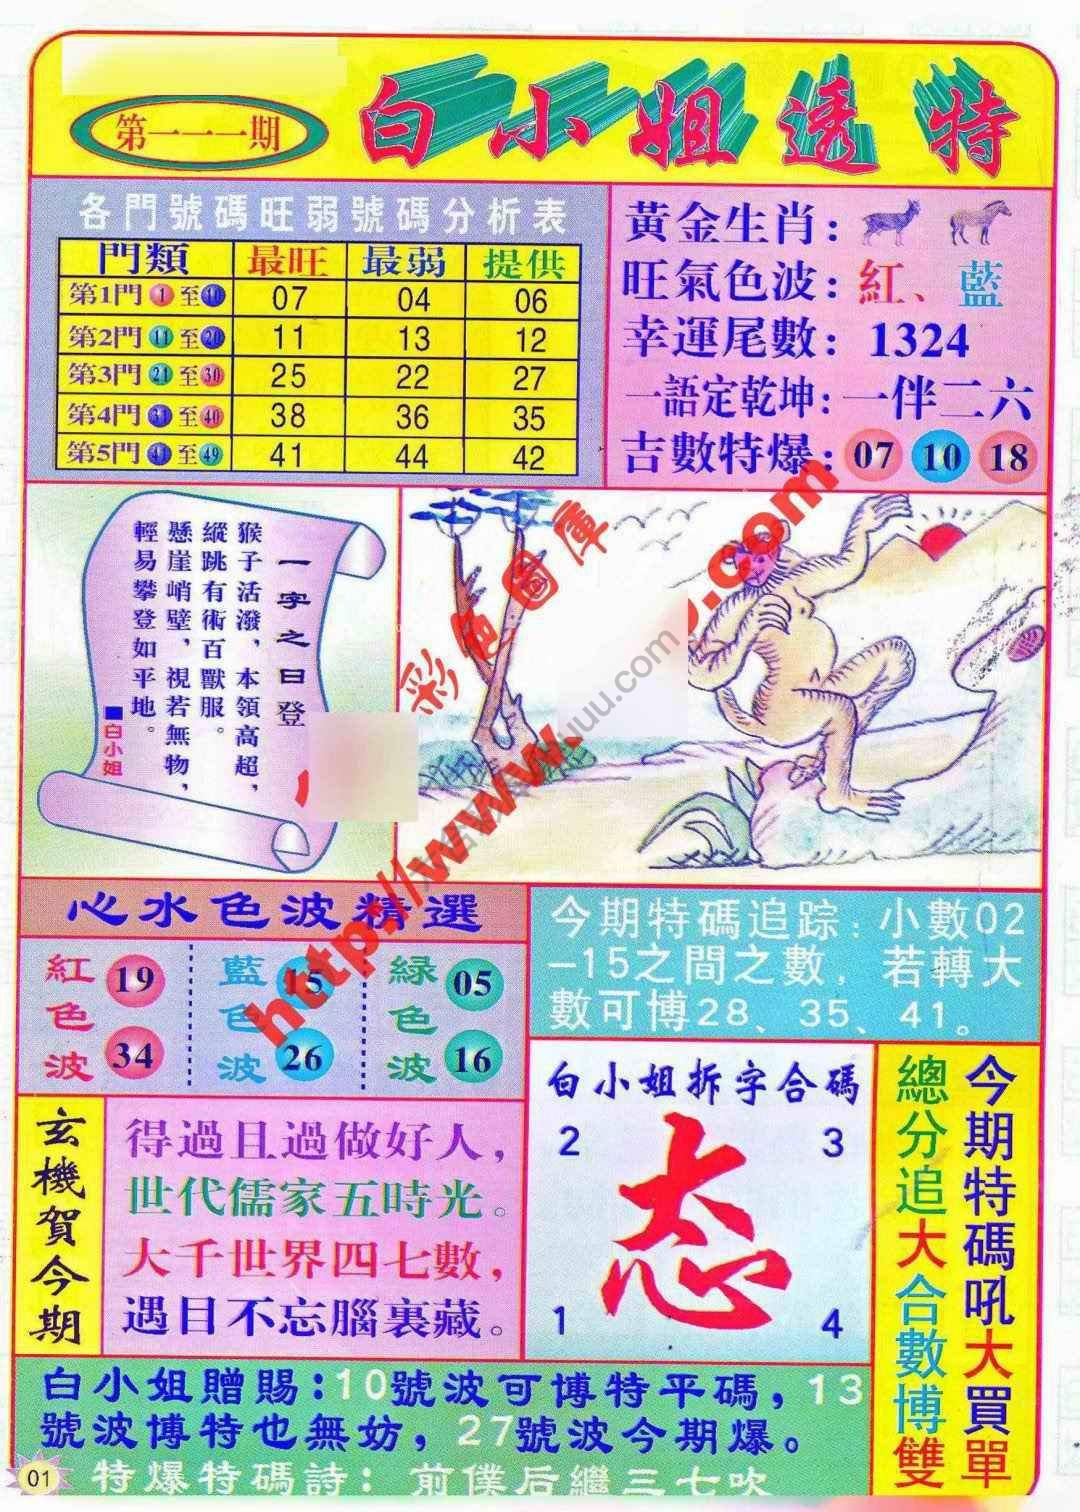 白小姐透特
第一一一期
各門號碼旺弱號碼分析表
門類 最旺 最弱 提供
第1門 1 至 10 07 04 06
第2門 11 至 20 11 13 12
第3門 21 至 30 25 22 27
第4門 31 至 40 38 36 35
第5門 41 至 49 41 44 42
黃金生肖:
旺氣色波: 紅、藍
幸運尾數: 1324
一語定乾坤: 一伴二六
吉數特爆: 07 10 18
一字之曰登
猴子活潑,本領高超,
縱跳有術百獸服。
懸崖峭壁,視若無物,
輕易攀登如平地。
■白小姐
彩色圖庫
http://www.
.com
心水色波精選
紅色波 19 34
藍色波 15 26
緑色波 05 16
今期特碼追踪:小數02
-15之間之數,若轉大
數可博28、35、41。
玄機賀今期
得過且過做好人,
世代儒家五時光。
大千世界四七數,
遇目不忘腦裏藏。
白小姐拆字合碼
2 3
态
1 4
今期特碼吼大買單
總分追大合數博雙
白小姐贈賜:10號波可博特平碼,13
號波博特也無妨,27號波今期爆。
特爆特碼詩:前僕后繼三七吹
01